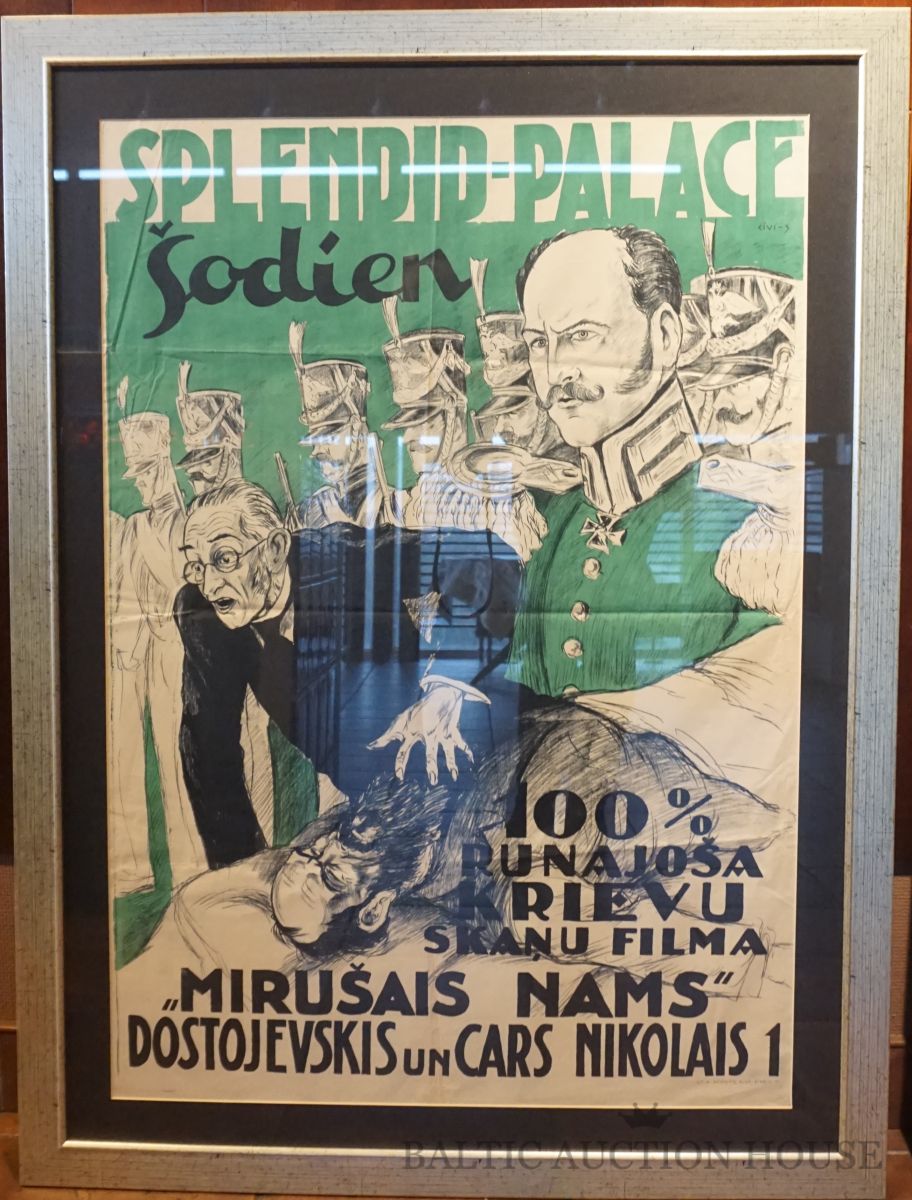 SPLENDID-PALACE
CIVI-S
Šodien
100%
RUNAJOŠA
KRIEVU
SKAŅU FILMA
„MIRUŠAIS NAMS"
DOSTOJEVSKIS UN CARS NIKOLAIS 1
BALTIC AUCTION HOUSE